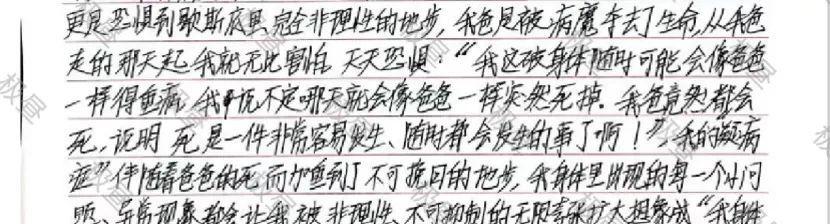 更是恐惧到歇斯底里完全非理性的地步，我爸是被病魔夺去了生命，从我爸
走的那天起我就无比害怕 天天恐惧：“我这破身体随时可能会像爸爸
一样得重病，我说不定哪天就会像爸爸一样突然死掉。我爸竟然都会
死，说明 死是一件非常容易发生、随时都会发生的事了啊！”，我的疑病
症”伴随着爸爸的死而加重到了不可挽回的地步，我身体里出现的每一个小问
题、异常现象都会让我被非理性、不可抑制的无限夸张扩大想象成“我自
极昼